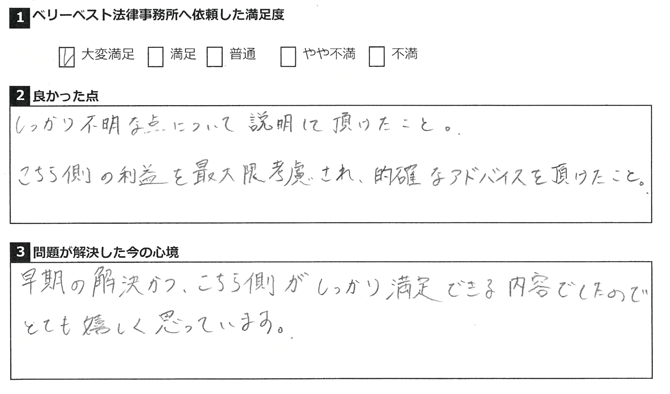 1 ベリーベスト法律事務所へ依頼した満足度
☑ 大変満足 □ 満足 □ 普通 □ やや不満 □ 不満
2 良かった点
しっかり不明な点について説明して頂けたこと。
こちら側の利益を最大限考慮され、的確なアドバイスを頂けたこと。
3 問題が解決した今の心境
早期の解決かつ、こちら側がしっかり満足できる内容でしたので
とても嬉しく思っています。